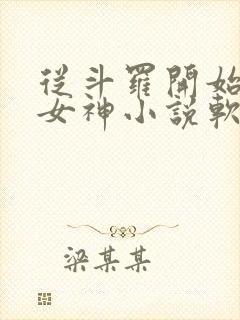 從斗羅開始
女神小說軟
梁某某